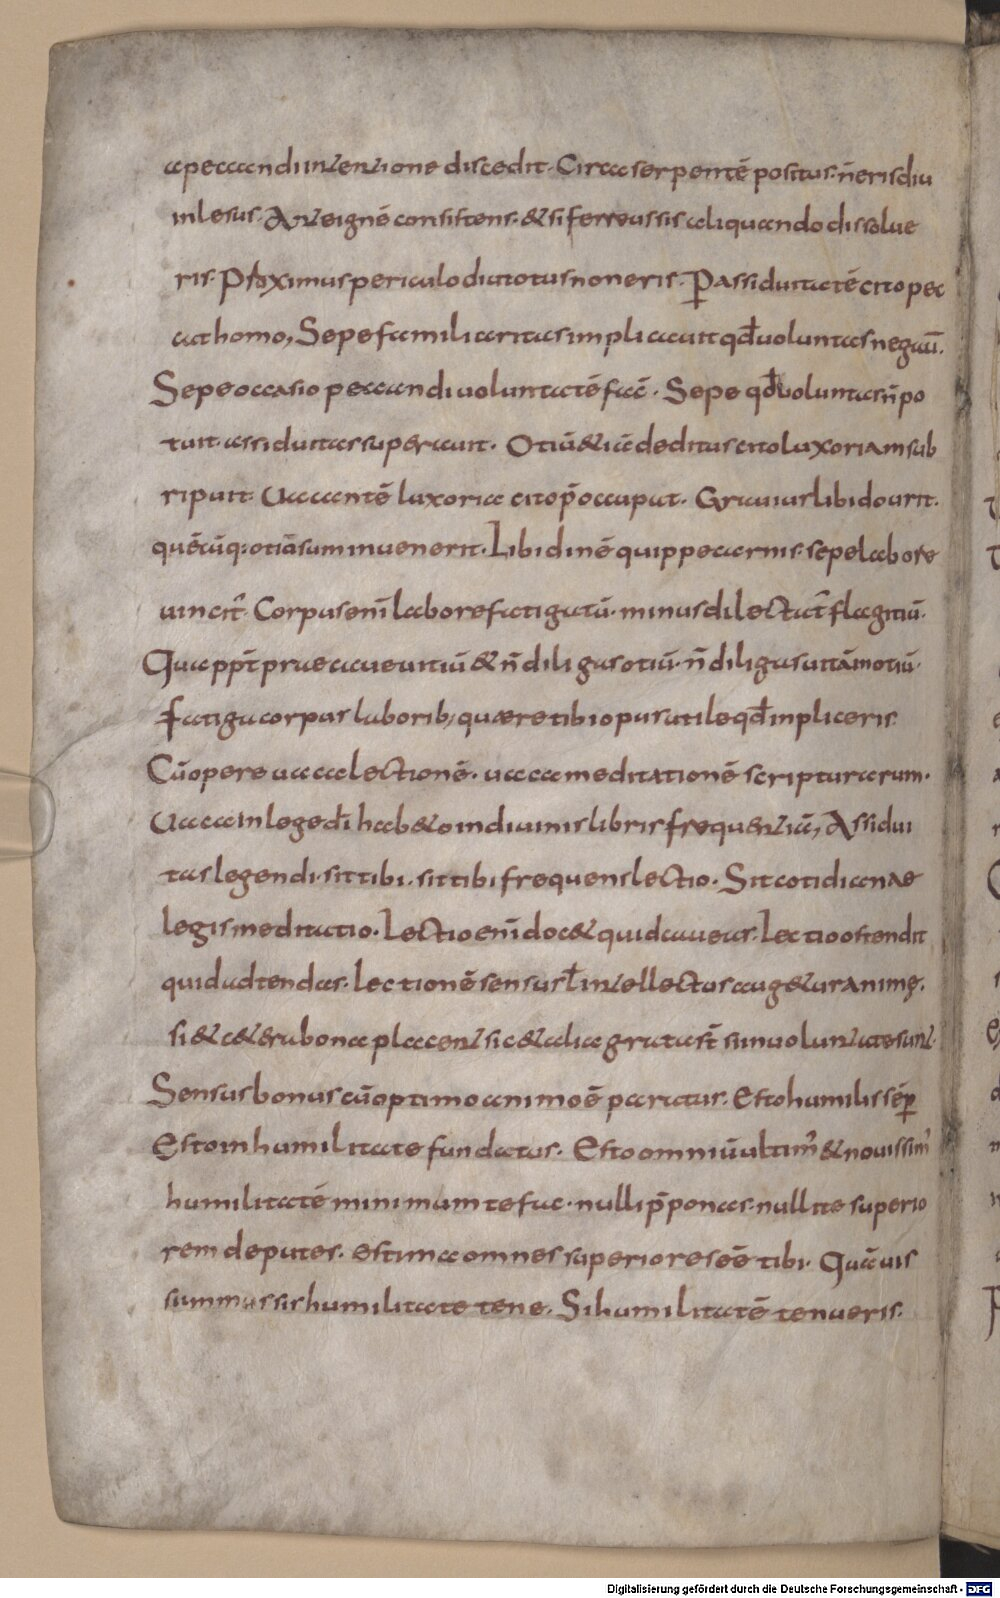 a peccandi intentione discedit. Circa serpentē positus. n̄ eris diu
inlesus. Ante ignē consistens. & si ferreus sis aliquando dissolue
ris. Proximus periculo diu totus non eris. P̱ assiduitatē cito pec
cat homo, Sepe familiaritas implicauit qđ uoluntas n̄ egaui.
Sepe occasio peccandi uoluntatē fac̄. Sepe qđ uoluntas n̄ po
tuit. assiduitas superauit. Otiū & iā deditus cito luxoriam sub
ripuit. Uacantē luxoria cito p̄occuput. Grauius libido urit.
quēcūq: otiāsum inuenerit. Libidinē quippe carnis. sepe labore
uincit̄. Corpus eni̅ labore fatigatū. minus dilectat̄ flagitiū.
Quapp̄t praecaue uitiū & n̄ diligas otiū. n̄ diligas uitām otiū.
Fatiga corpus laborib; quaere tibi opus utile qđ inpliceris.
Cū opere uaca lectionē. uaca meditationē scripturarum.
Uaca in lege dī habeto in diuinis libris frequentiā, Assidui
tas legendi. sit tibi. sit tibi frequens lectio. Sit cotidianae
legis meditatio. Lectio eni̅ doc& quid caueas. Lectio ostendit
quid adtendas. lectionē sensus ł intellectus aug&ur animę.
si & c&era bona placent sic & alia grata st̄ sin uoluntate sunt.
Sensus bonus cū optimo animo ē paratus. Esto humilis sēp̱
Esto in humilitate fundatus. Esto omniū ultim' & nouissim'
humilitatē minimum te fac. nulli p̄ponas. nulli te superio
rem deputes. estima omnes superiores eē tibi. Quāuis
summus sis humilitate tene. Si humilitatē tenueris.
Digitalisierung gefördert durch die Deutsche Forschungsgemeinschaft - DFG